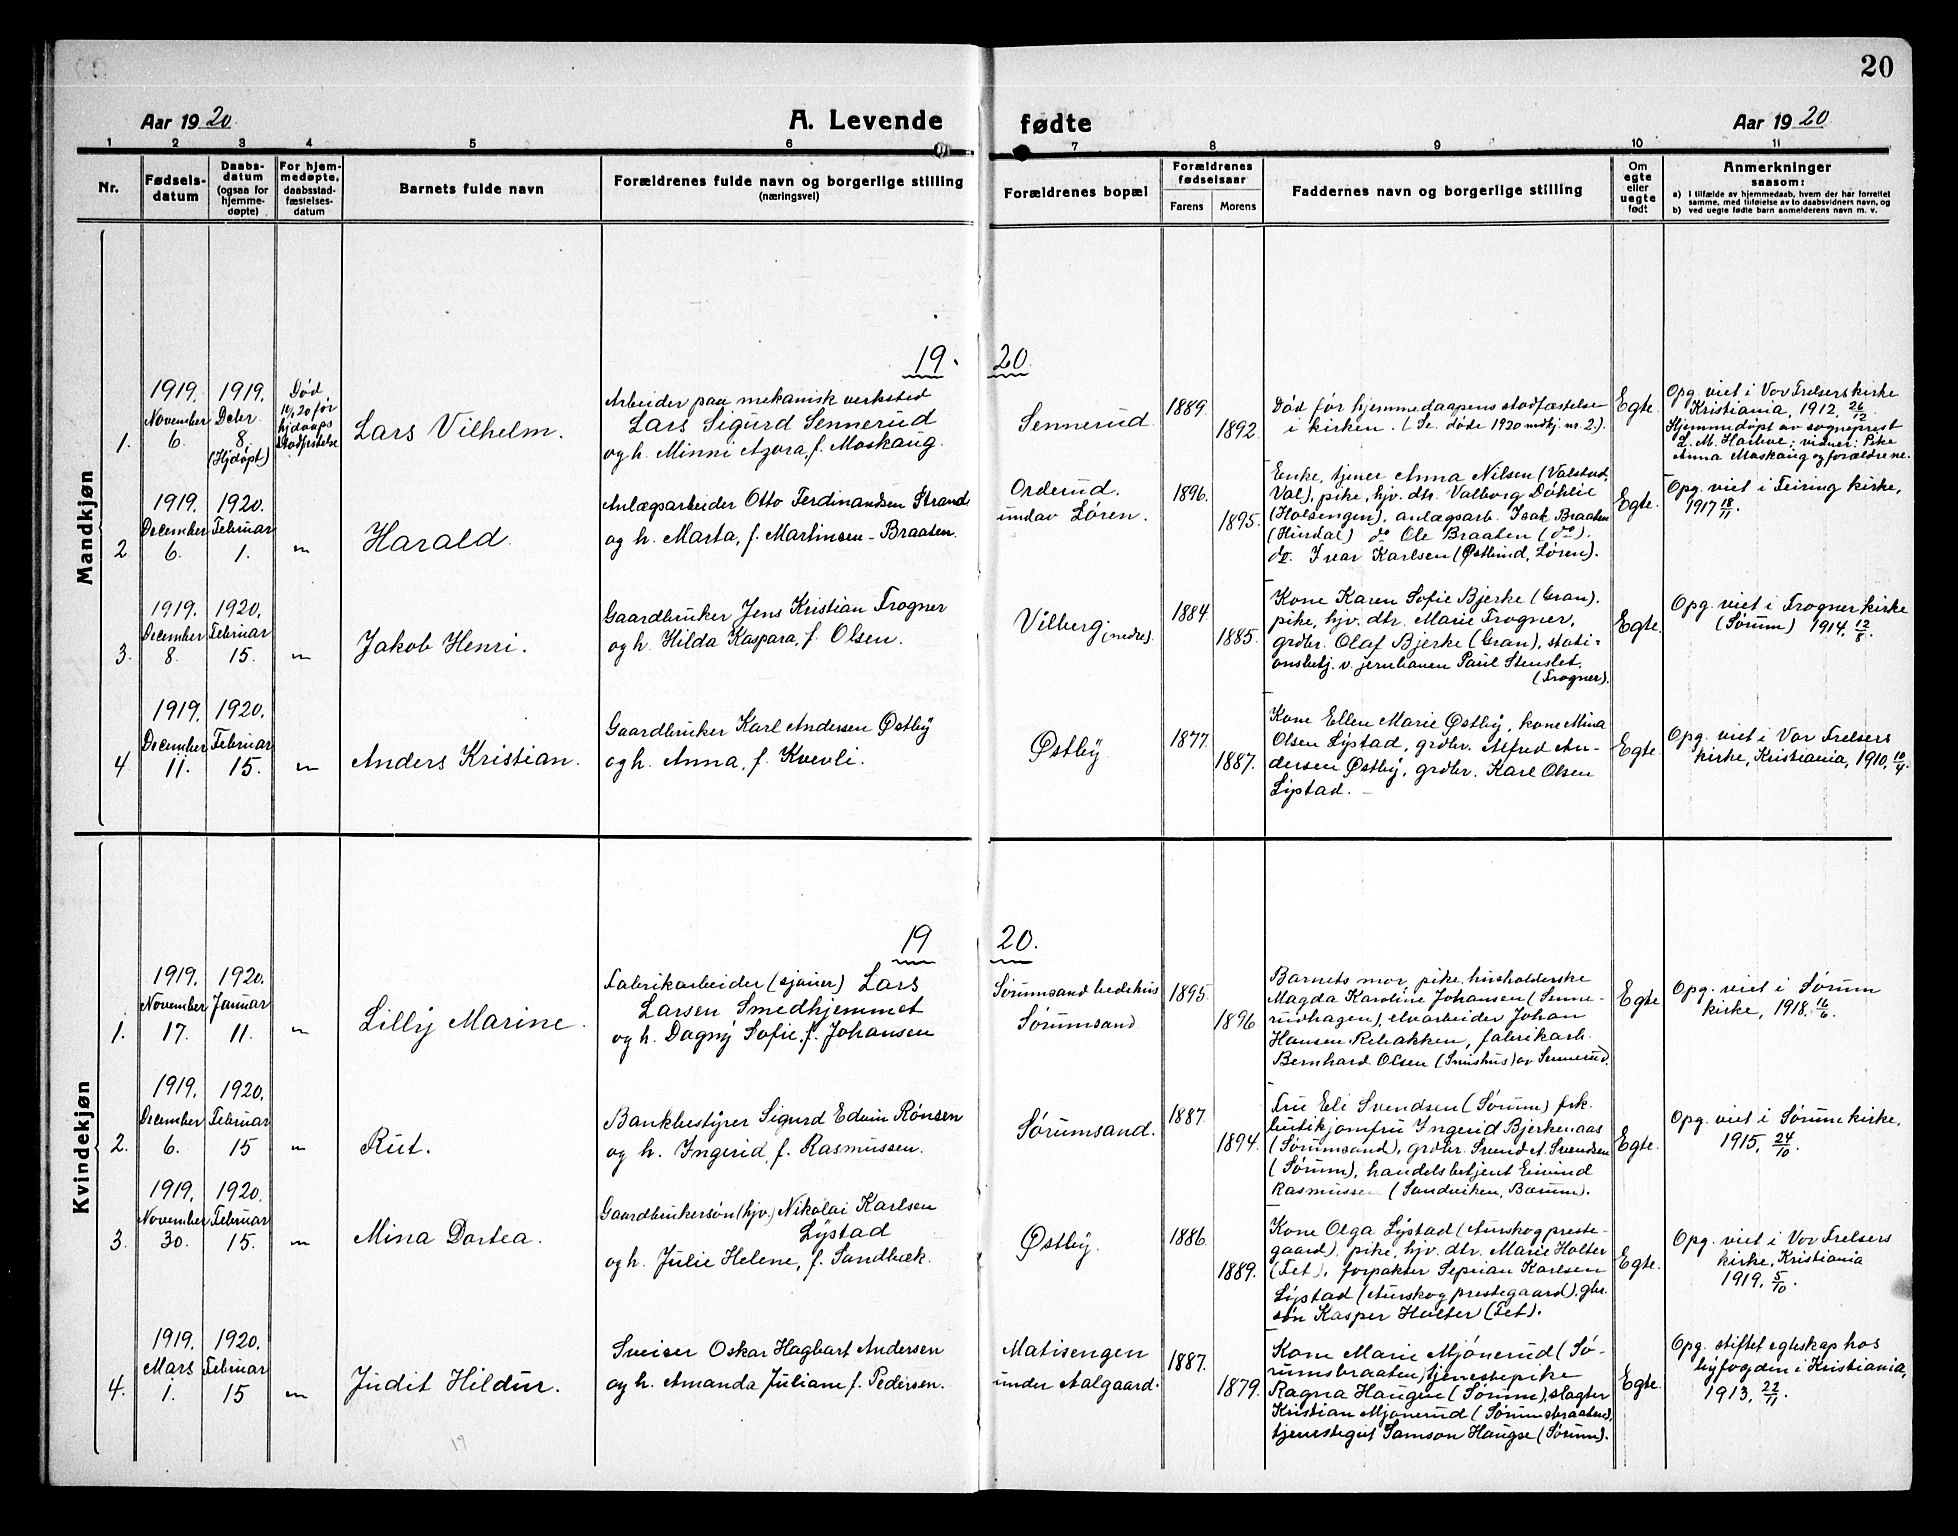 20
Aar 1920
A. Levende
fødte
Aar 1920
1 2 3 4 5 6 7 8 9 10 11
Nr.
Fødsels-
datum
Daabs-
datum
(ogsaa for
hjemme-
døpte)
For hjem-
medøpte,
daabsstad-
fæstelses-
datum
Barnets fulde navn
Forældrenes fulde navn og borgerlige stilling
(næringsvei)
Forældrenes bopæl
Forældrenes
fødselsaar
Farens
Morens
Faddernes navn og borgerlige stilling
Om
egte
eller
uegte
født
Anmerkninger
saasom:
a) I tilfælde av hjemmedaab, hvem der har forrettet
samme, med tilføielse av to daabsvidners navn, og
b) ved uegte fødte barn anmelderens navn m. v.
Mandkjøn
19. 20.
1.
1919.
November
6.
1919.
Dcbr
8.
(Hjdøpt)
Død
før
hjdaaps
stadfæstelse
Lars Vilhelm.
Arbeider paa mekanisk verksted
Lars Sigurd Sennerud
og h. Minni Azora, f. Moskaug.
Sennerud.
1889.
1892.
Død før hjemmedaapens stadfæstelse
i kirken. (Se døde 1920 mdkj. nr. 2.).
Egte.
Opg. viet i Vor Frelsers kirke
Kristiania, 1912, 26/12
Hjemmedøpt av sogneprest
L. M. Harboe; vidner: Pike
Anna Moskaug og forældrene.
2
1919.
December
6.
1920.
Februar
1.
"
Harald.
Anlægsarbeider Otto Ferdinandsen Strand
og h. Marta, f. Martinsen-Braaten.
Orderud.
undav Løren.
1896.
1895.
Enke, tjener Anna Nilsen (Valstad,
Val), pike, hjv. dtr. Valborg Døhlie
(Holsengen), anlægsarb. Isak Braaten
(Hurdal) do Ole Braaten (do).
do. Ivar Karlsen (Østlund, Løren).
Egte.
Opg. viet i Feiring kirke,
1917 18/11.
3.
1919.
December
8.
1920.
Februar
15.
"
Jakob Henri.
Gaardbruker Jens Kristian Frogner
og h. Hilda Kaspara, f. Olsen.
Vilberg (nedre).
1884.
1885.
Kone Karen Sofie Bjerke (Gran).
pike, hjv. dtr. Marie Frogner,
grdbr. Olaf Bjerke (Gran), stati-
onsbetj. v. jernbanen Paul Stenslet,
(Frogner).
Egte.
Opg. viet i Frogner kirke
(Sørum) 1914, 12/8.
4
1919.
December
11.
1920.
Februar
15.
"
Anders Kristian.
Gaardbruker Karl Andersen Østby
og h. Anna, f. Kvevli.
Østby
1877.
1887.
Kone Ellen Marie Østby, kone Mina
Olsen Lystad, grdbr. Alfred An-
dersen Østby, grdbr. Karl Olsen
Lystad.
Egte.
Opg. viet i Vor Frelsers
kirke, Kristiania, 1910, 10/4.
Kvindekjøn
19 20.
1.
1919.
November
17.
1920.
Januar
11.
"
Lilly Marine.
Fabrikarbeider (sjauer) Lars
Larsen Smedhjemmet
og h. Dagny Sofie, f. Johansen
Sørumsand bedehus
Sørumsand
1895.
1896
Barnets mor, pike, husholderske
Magda Karoline Johansen (Senne-
rudhagen), elvarbeider Johan
Hansen Rebakken, fabrikarb.
Bernhard Olsen (Snushus) av Sennerud.
Egte
Opg. viet i Sørum
kirke, 1918, 16/6.
2.
1919.
December
6.
1920.
Februar
15
"
Rut.
Bankbestyrer Sigurd Edvin Rønsen
og h. Ingerid, f. Rasmussen.
Sørumsand.
1887.
1894.
Fru Eli Svendsen (Sørum) frk.
butikjomfru Ingerid Bjerkenaas
(Sørumsand), grdbr. Svend A. Svendsen
(Sørum), handelsbetjent Eivind
Rasmussen (Sandviken, Bærum).
Egte.
Opg. viet i Sørum kirke,
1915, 24/10.
3.
1919.
November
30.
1920.
Februar
15.
"
Mina Dortea.
Gaardbrukersøn (hjv.) Nikolai Karlsen
Lystad
og h. Julie Helene, f. Sandbæk.
Østby.
1886.
1889.
Kone Olga Lystad (Aurskog preste-
gaard), pike, hjv. dtr. Marie Holter
(Fet), forpakter Seprian Karlsen
Lystad (Aurskog prestegaard), gbr.
søn Kasper Holter (Fet).
Egte.
Opg. viet i Vor Frelsers
kirke, Kristiania
1919, 5/10.
4.
1919.
Mars
1.
1920.
Februar
15
"
Judit Hildur.
Sveiser Oskar Hagbart Andersen
og h. Amanda Juliane f. Pedersen.
Matisengen
under Aalgaard.
1887.
1879.
Kone Marie Mjønerud (Sø-
rumsbraaten), tjenestepike
Ragna Haugen (Sørum), slagter
Kristian Mjønerud (Sørumsbraaten),
tjenestegut Samson Haugse (Sørum).
Egte.
Opg. stiftet egteskap hos
byfogden i Kristiania,
1913, 22/11.
19